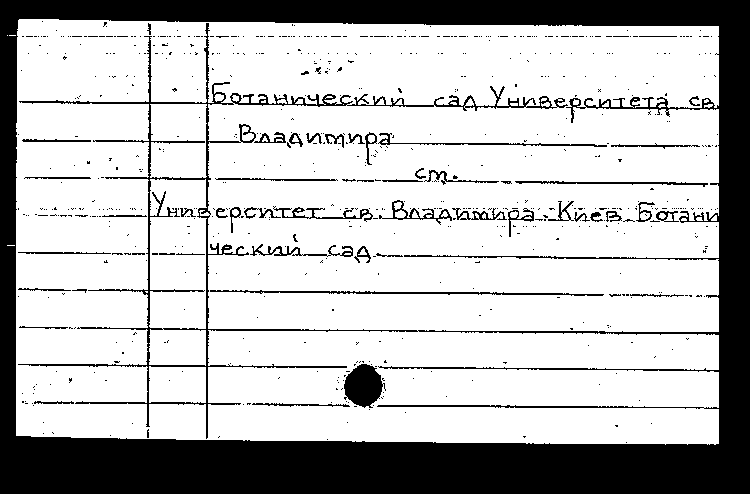 Ботанический сад Университета св.
Владимира
см.
Университет св. Владимира. Киев. Ботани
ческий сад.